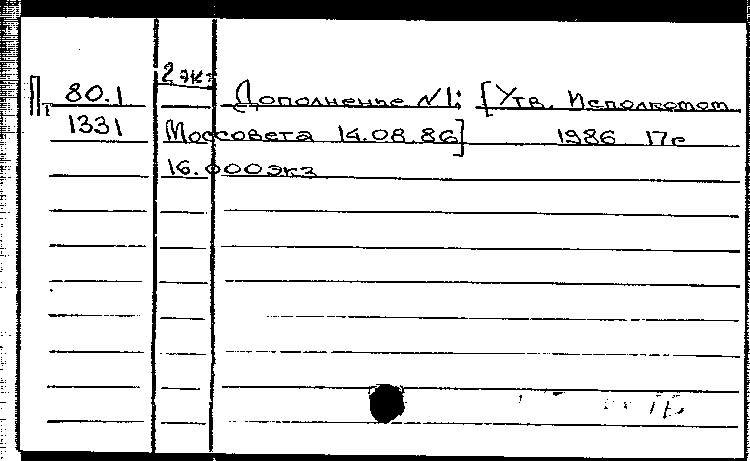 2 экз
П 80.1 Дополнение №1; [Утв. Исполкомом
1331 Моссовета 14.08.86] 1986 17с
16.000экз